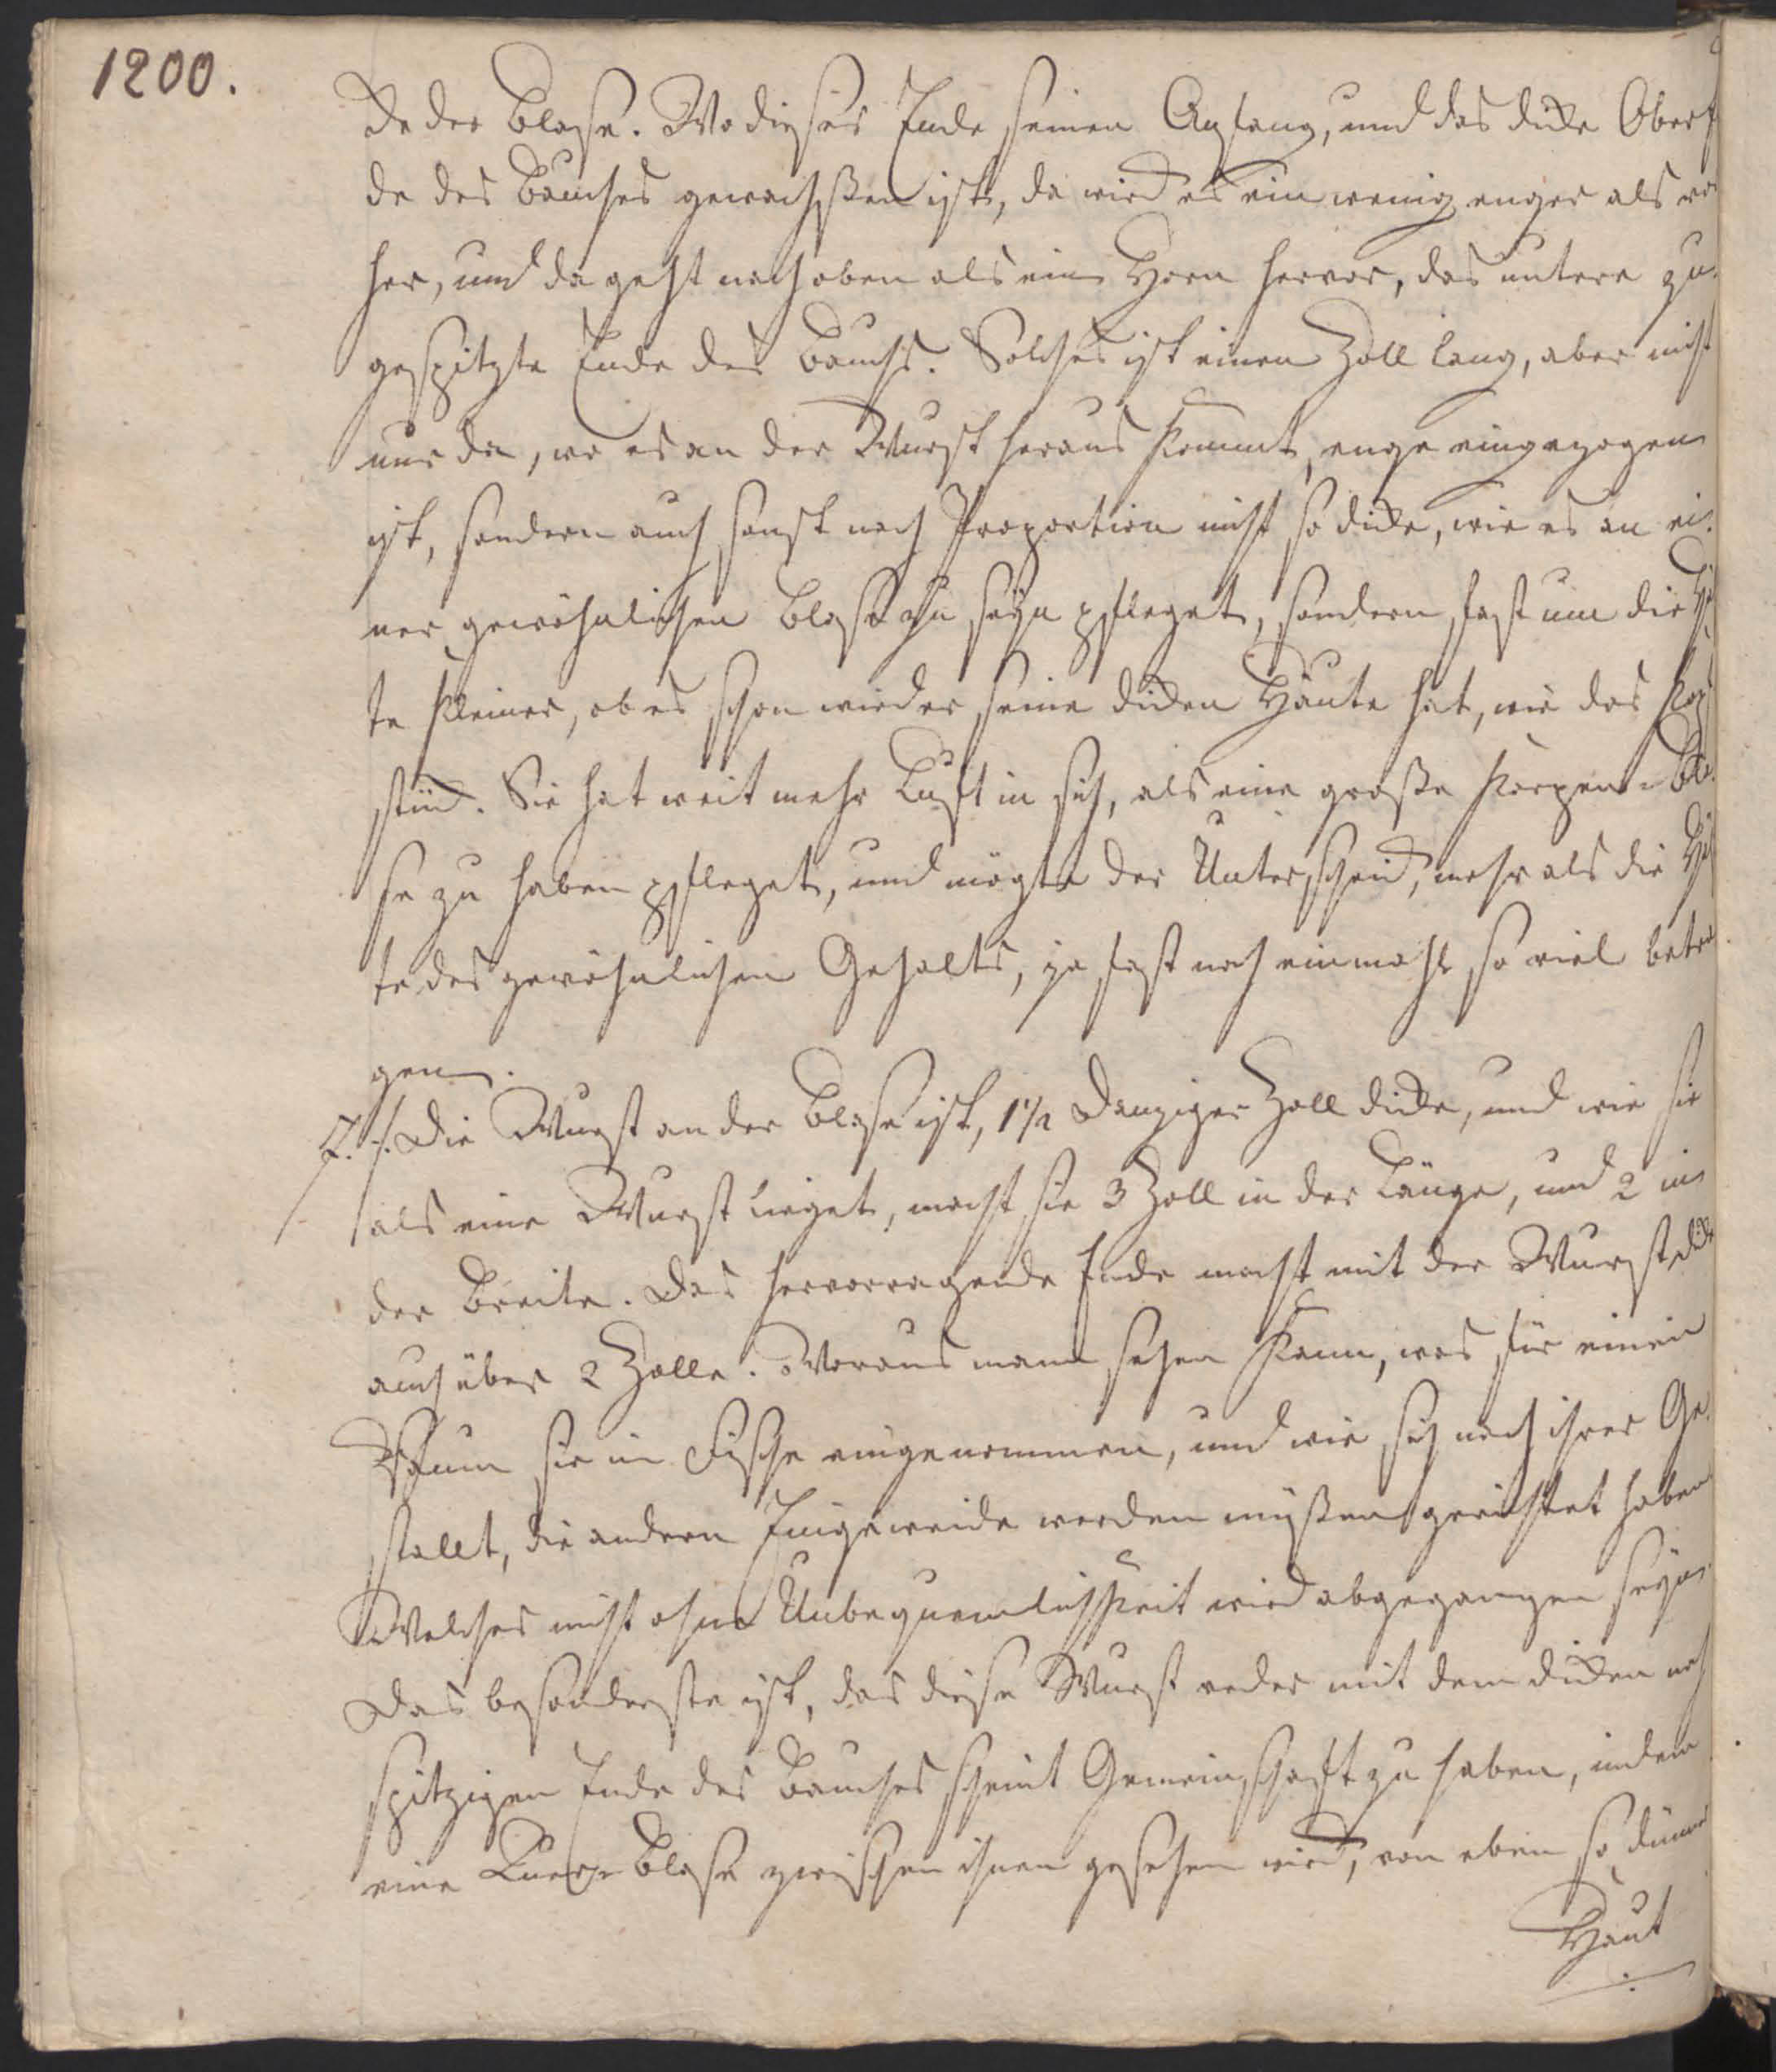 1200.
de der Blase. Wo dieses Ende seinen Anfang, und das dicke Ober¿
de des Bauches gewachßen ist, da wird es ein wenig enger als vor
her, und da geht nach oben als ein Horn hervor, das untere zu-
gespitzte Ende des Bauchs. Solches ist einen Zoll lang, aber nicht
nur da, wo es an der Wurst heraus kommt, enge eingezogen
ist, sondern auch sonst nach Proportion nicht so dicke, wie es an ei-
ner gewöhnlichen Blase zu seyn pfleget, sondern fast um die Helf
te kleiner, ob es schon wieder seine dicken Häute hat, wie das
stück. Sie hat weit mehr Luft in sich, als eine große Karpen-Bla-
se zu haben pfleget, und mögte der Unterscheid, mehr als die Helf
te des gewöhnlichen Gehalts, ja fast noch einmahl so viel betra
gen.
7. /. Die Wurst an der Blase ist, 1½ Danziger Zoll dicke, und wie sie
als eine Wurst lieget, macht sie 3 Zoll in der Länge, und 2 in
der Breite. Das hervorragende Ende macht mit der Wurst dicke
auch über 2 Zolle. Woraus mann sehen kann, was für einen
Raum sie im Fische eingenommen, und wie sich nach ihrer Ge-
stallt, die andern Eingeweide werden müßen gerichtet haben
Welches nicht ohne Unbequemlichkeit wird abgegangen seyn.
Das besonderste ist, das diese Wurst weder mit dem dicken noch
spitzigen Ende des Bauches scheint Gemeinschaft zu haben, indem
eine Queer-Blase zwischen ihnen gesehen wird, von eben so dünner
Haut